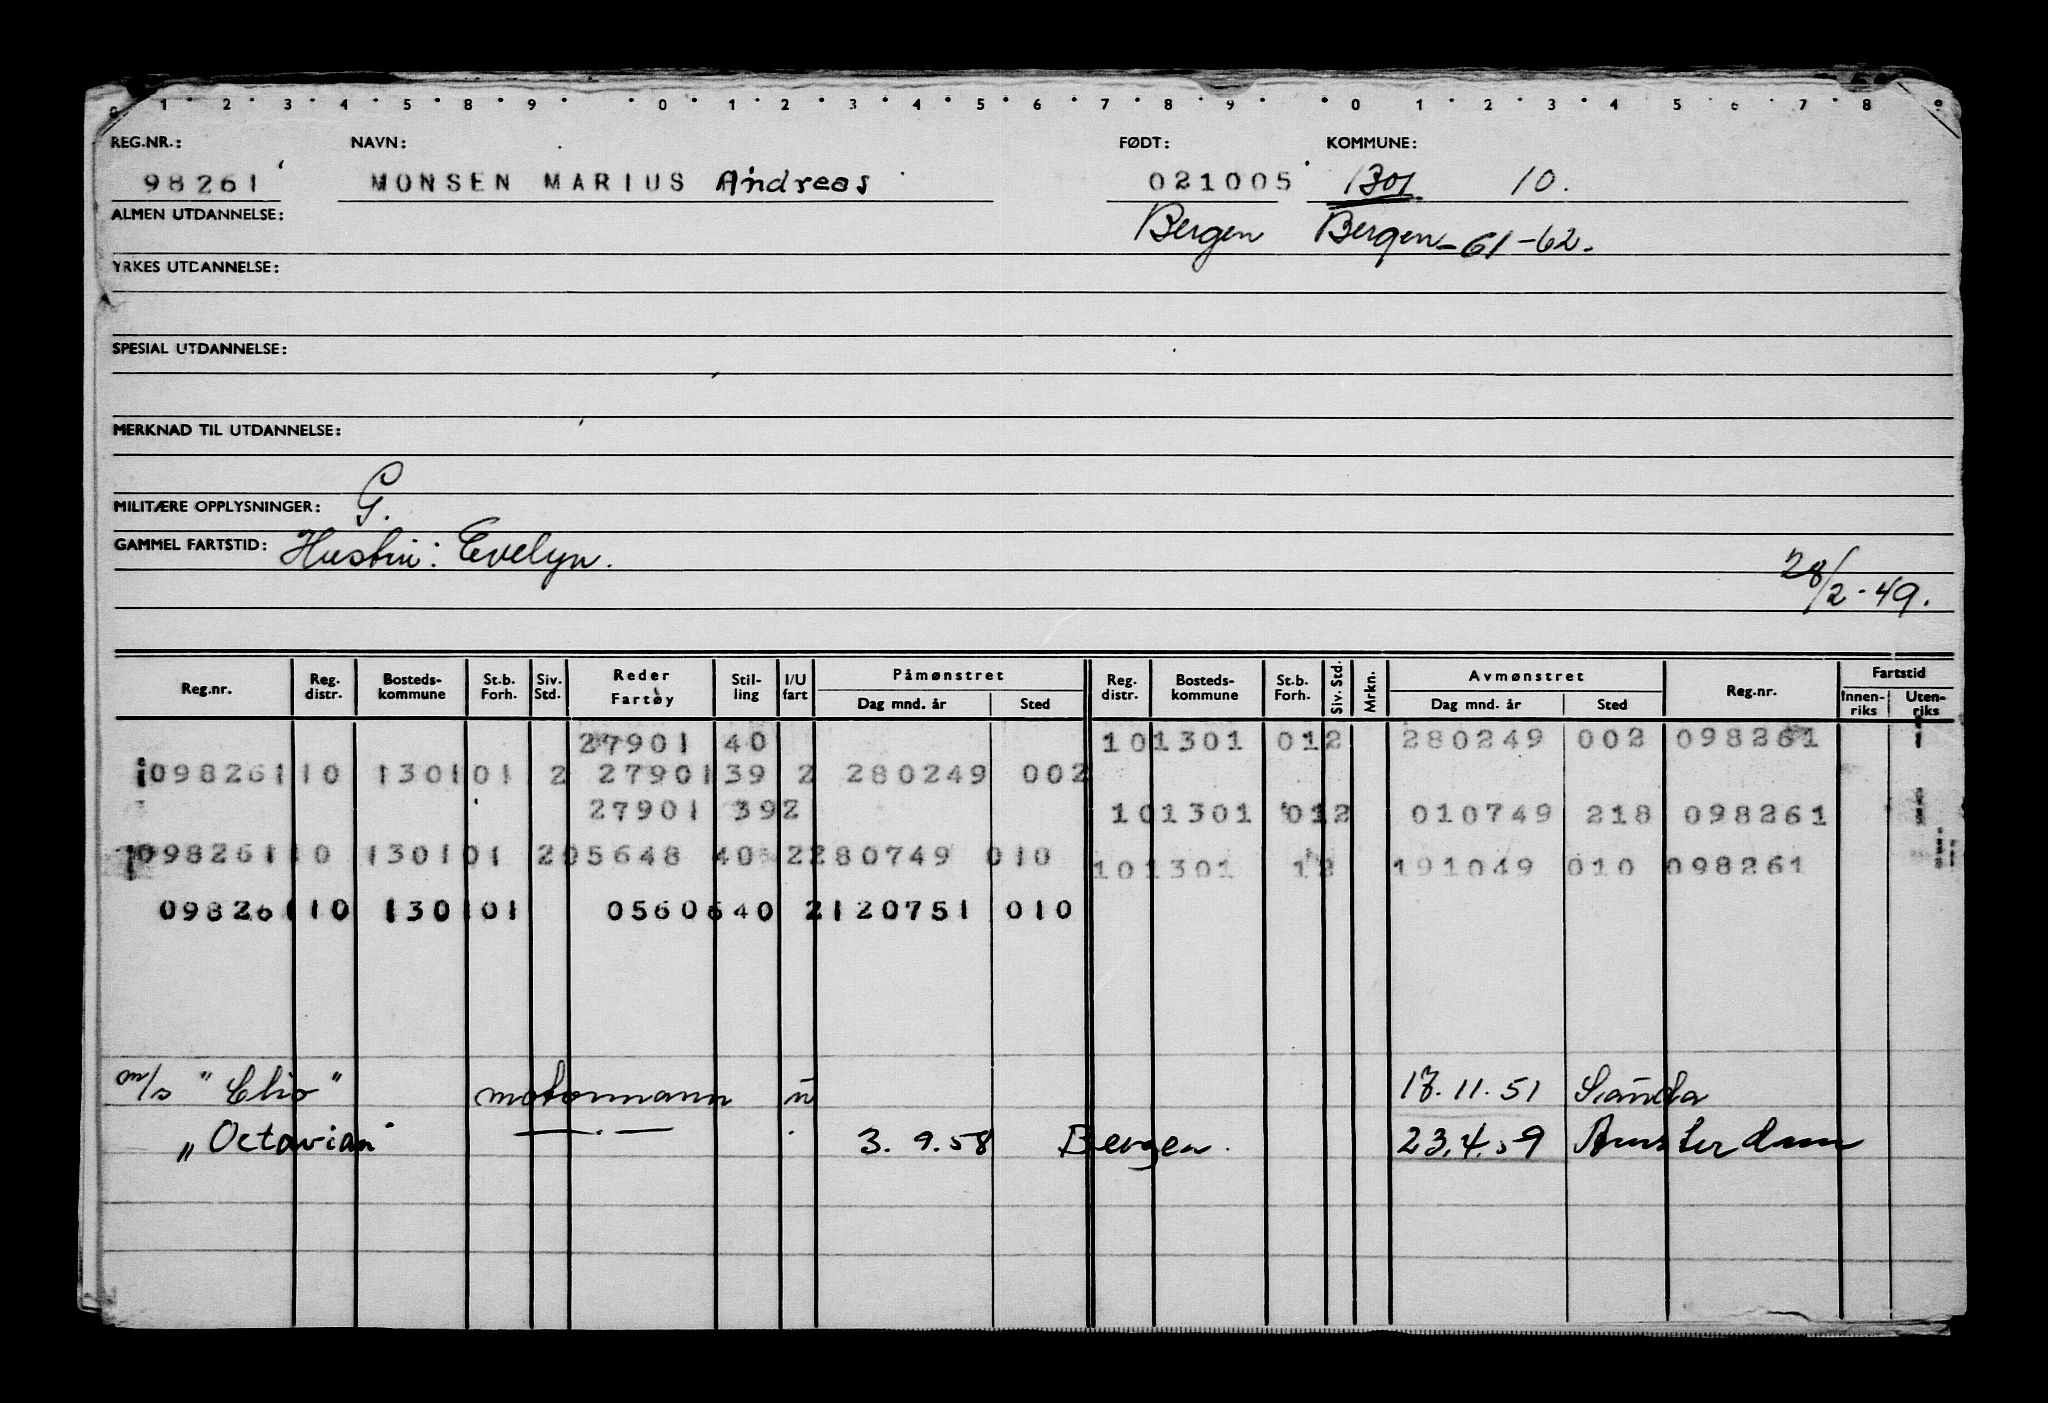 0 1 2 3 4 5 6 7 8 9 0 1 2 3 4 5 6 7 8 9 0 1 2 3 4 5 6 7 8 9
REG.NR.: NAVN: FØDT: KOMMUNE:
98261 MONSEN MARIUS Andreas 021005 1301 10.
ALMEN UTDANNELSE: Bergen Bergen - 61-62.
YRKES UTDANNELSE:
SPESIAL UTDANNELSE:
MERKNAD TIL UTDANNELSE:
MILITÆRE OPPLYSNINGER: G.
GAMMEL FARTSTID: Hustru: Evelyn.
28/2-49.
Reg.nr. Reg. distr. Bosteds-kommune St.b. Forh. Siv. Std. Reder Fartøy Stil-ling I/U fart Påmønstret Dag mnd. år Sted Reg. distr. Bosteds-kommune St.b. Forh. Siv. Std. Mrkn. Avmønstret Dag mnd. år Sted Reg.nr. Fartstid Innen-riks Uten-riks
27901 40 101301 012 280249 002 098261
098261 10 130101 2 27901 39 2 280249 002
27901 392 101301 012 010749 218 098261
098261 10 130101 2 05648 40 2 280749 010 101301 12 191049 010 098261
098261 10 130101 05606 40 2 120751 010
m/s "Clio" motormann u 17.11.51
" Octavian" —.— 3.9.58 Bergen. 23.4.59 Amsterdam